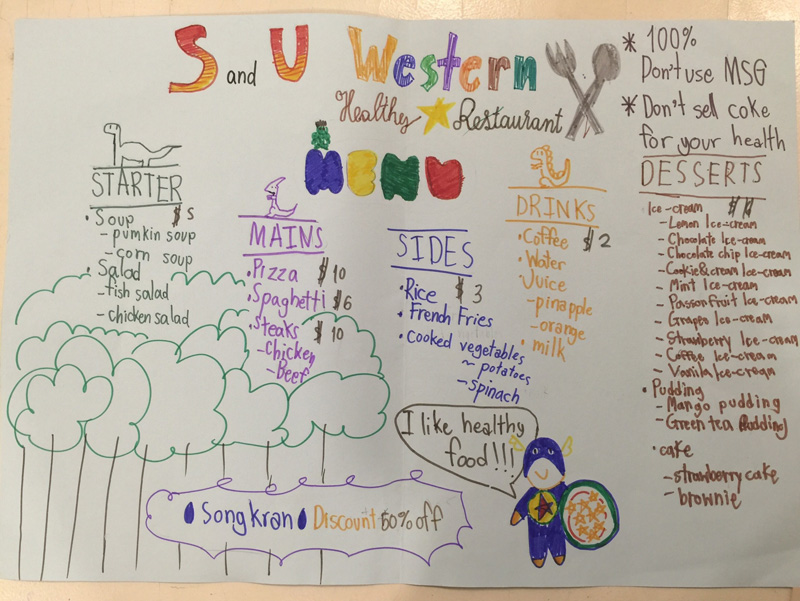 S and U Western
Healthy Restaurant
* 100%
Don't use MSG
* Don't sell coke
for your health
MENU
STARTER
• Soup $5
- pumkin soup
- corn soup
• Salad
- fish salad
- chicken salad
MAINS
• Pizza $10
• Spaghetti $6
• Steaks $10
- Chicken
- Beef
SIDES
• Rice $3
• French Fries
• Cooked vegetables
~ potatoes
- spinach
DRINKS
• Coffee $2
• Water
• Juice
- pinapple
- orange
• milk
DESSERTS
Ice-cream
- Lemon Ice-cream
- Chocolate Ice-cream
- Chocolate chip Ice-cream
- Cookie&cream Ice-cream
- Mint Ice-cream
- Passonfruit Ice-cream
- Grapes Ice-cream
- Strawberry Ice-cream
- Coffee Ice-cream
- Vanilla Ice-cream
• Pudding
- Mango pudding
- Green tea Pudding
• cake
- strawberry cake
- brownie
I like healthy
food!!!
Songkran Discount 50% off